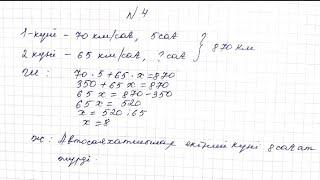 № 4
1-күні - 70 км/сағ, 5 сағ
2 күні - 65 км/сағ, ? сағ } 870 км
Ш: 70 · 5 + 65 · x = 870
350 + 65 x = 870
65 x = 870 - 350
65 x = 520
x = 520 : 65
x = 8
Ж: Автосаяхатшылар екінші күні 8 сағат
жүрді.